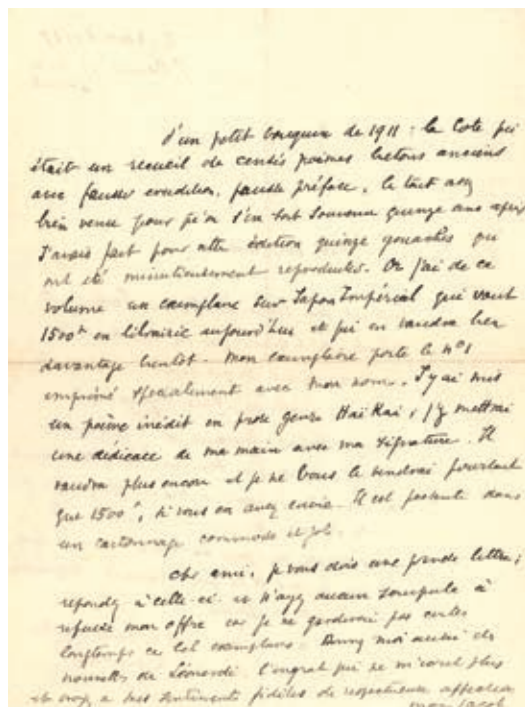 d'un petit bouquin de 1911 : la Cote qui
était un recueil de censés poèmes bretons anciens
avec fausse érudition, fausse préface, le tout assez
bien venu pour qu'on s'en soit souvenu quinze ans après
J'avais fait pour cette édition quinze gouaches qui
ont été minutieusement reproduites. Or j'ai de ce
volume un exemplaire sur Japon Impérial qui vaut
1500 f en librairie aujourd'hui et qui en vaudra bien
davantage bientôt. Mon exemplaire porte le n° 1
imprimé spécialement avec mon nom. J'y ai mis
un poème inédit en prose genre HaïKaï, j'y mettrai
une dédicace de ma main avec ma signature. Il
vaudra plus encore et je ne vous le vendrai pourtant
que 1500 f, si vous en avez envie. Il est présenté dans
un cartonnage commode et joli.
Cher ami, je vous dois une grande lettre ;
répondez à celle-ci et n'ayez aucun scrupule à
refuser mon offre car je ne garderai pas certes
longtemps ce bel exemplaire. Donnez moi aussi des
nouvelles de l'ingrat qui ne m'écrit plus
et croyez à mes sentiments fidèles de respectueuse affection
Max Jacob